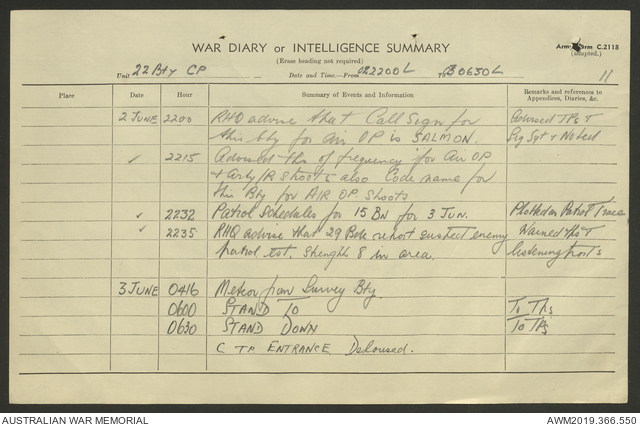 WAR DIARY or INTELLIGENCE SUMMARY
Army Form C.2118
(adapted.)
(Erase heading not required)
Unit 22 Bty CP Date and Time.—From 022200L to 030630L 11
Place Date Hour Summary of Events and Information Remarks and references to
Appendices, Diaries, &c.
2 JUNE 2200 RHQ advise that Call Sign for Advised TPs &
this bty for Air OP is SALMON. Sig Sgt & Noted
✓ 2215 Advised this of frequency for Air OP
& Arty/R shoots also Code name for
this Bty for AIR OP Shoots
✓ 2232 Patrol Schedules for 15 BN for 3 JUN. Plotted on Patrol Trace
✓ 2235 RHQ advise that 29 Bde report suspect enemy Warned
patrol est. strength 8 in area. listening posts
3 JUNE 0416 Meteor from Survey Bty.
0600 STAND TO To TPs
0630 STAND DOWN To TPs
C TP ENTRANCE Deloused.
AUSTRALIAN WAR MEMORIAL AWM2019.366.550